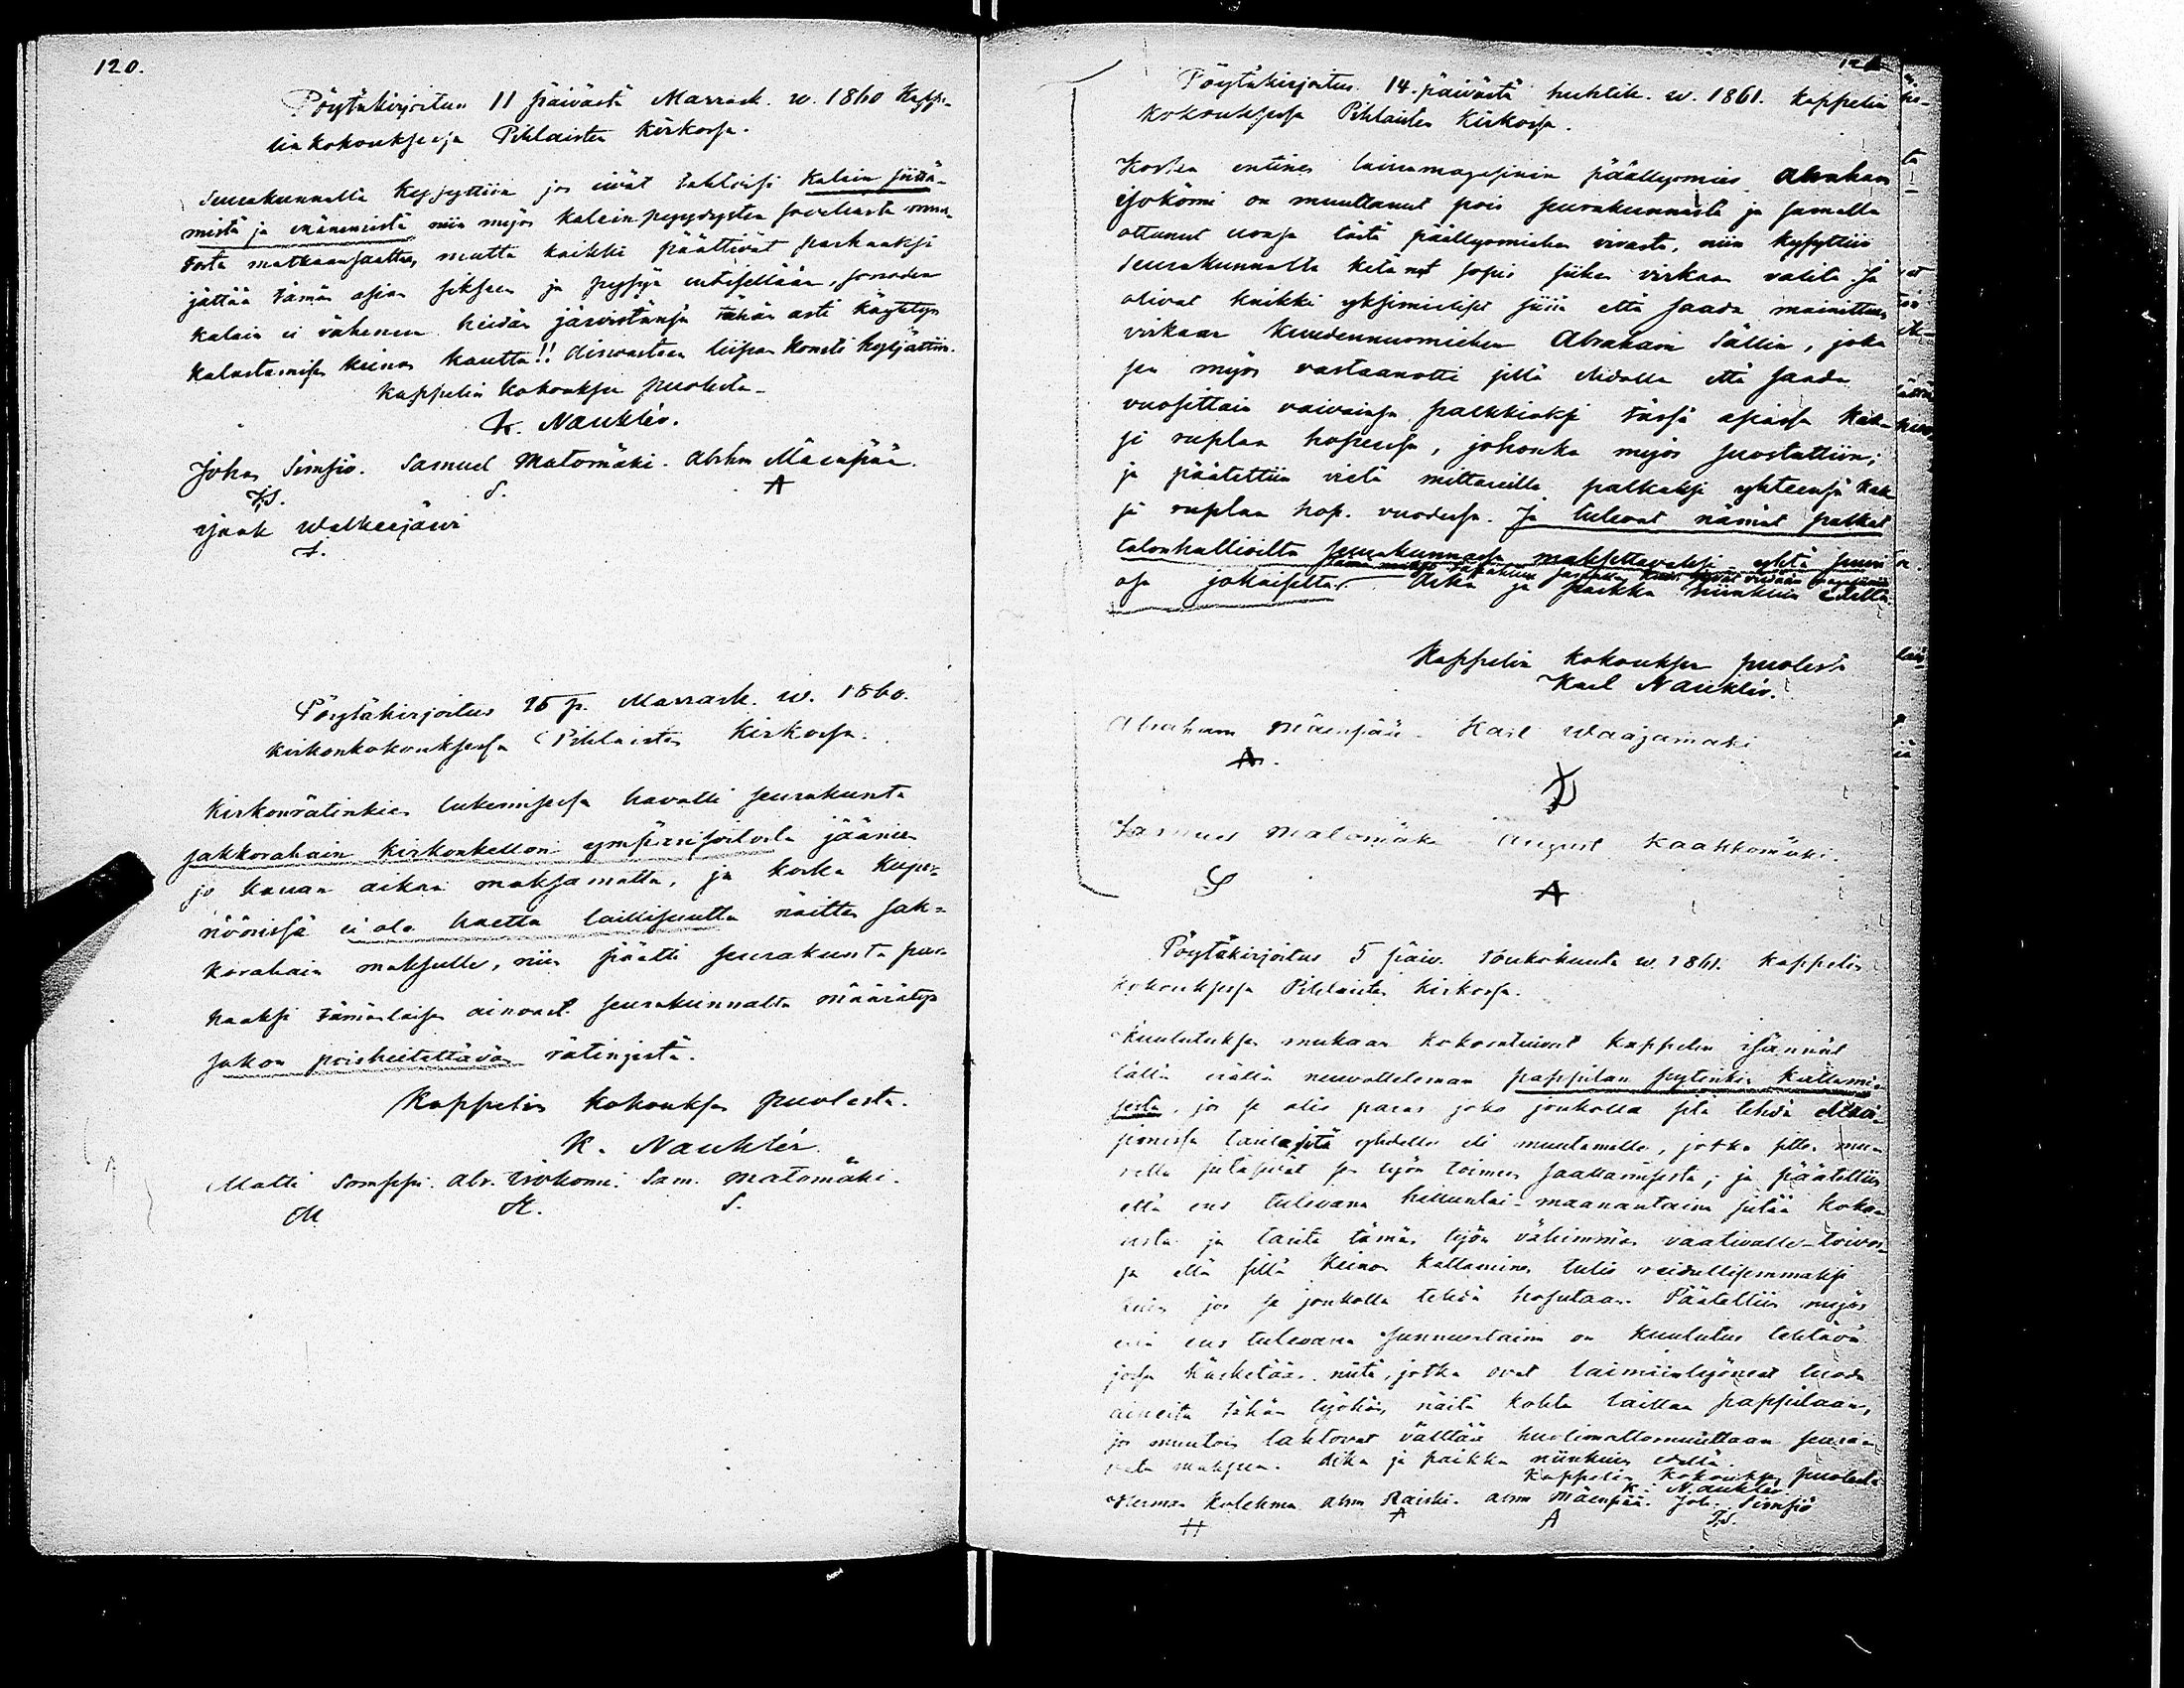 120.
Pöytäkirjoitus 11 päivästä Marrask. w. 1860 Kappe-
lin kokouksessa Pihlaisten Kirkossa.
Seurakunnalta kysyttiin jos eivät tahtoisi kalain siittä-
mistä ja enänemistä niin myös kalain pyydysten soveliasta muu-
tosta matkaansaattaa, mutta kaikki päättivät parhaaksi
jättää tämän asian sikseen ja pysyä entisellään,
kalain ei vähenevän heidän järvistänsä tähän asti käytetyn
kalastamisen keinon kautta!!
Kappelin kokouksen puolesta
K. Nauklér.
Johan Simsiö. Samuel Matomäki. Abrhm Mäenpää.
J.S. S. A
Isaak Walkeejärwi
I.
Pöytäkirjoitus 25 p. Marrask. w. 1860.
Kirkonkokouksessa Pihlaisten Kirkossa.
Kirkonrätinkien lukemisessa havatti seurakunta
sakkorahain kirkonkellon ympärisoitosta jäänen
jo kauan aikaa maksamatta, ja koska
ei ole haettu laillisuutta näitten sak-
korahain maksulle, niin päätti seurakunta par-
haaksi tämänlaisen ainoast. seurakunnalta määrätyn
sakon poisheitettävän rätingistä.
Kappelin kokouksen puolesta.
K. Nauklér.
Matti Somppi. Abr. Isokomi. Sam. Matomäki.
M A. S.
Pöytäkirjoitus 14. päivästä huhtik. w. 1861. Kappelin
kokouksessa Pihlaisten Kirkossa.
Koska entinen lainamagasinin päällysmies Abraham
Isokömi on muuttanut pois seurakunnasta ja samalla
ottanut eronsa tästä päällysmiehen virasta, niin kysyttiin
seurakunnalta ketä nyt sopis siihen virkaan valita. Ja
olivat kaikki yksimieliset siinä että saada mainittuun
virkaan kuudennusmiehen Abraham Sällin, joka
sen myös vastaanotti sillä ehdolla että saada
vuosittain vaivainsa palkkioksi tässä asiassa kak-
si ruplaa hopeassa, johonka myös suostuttiin;
ja päätettiin vielä mittareille palkaksi yhteensä kak-
si ruplaa hop. vuodessa. Ja tulevat nämät palkat
talonhallioilta seurakunnassa maksettavaksi yhtä suuri
osa jokaiselta. Aika ja paikka niinkuin edellä.
Kappelin kokouksen puolesta
Karl Nauklér.
Abraham Mäenpää. Karl Waajamäki
A.
Samuel Matomäki August Kaakkomäki.
S A
Pöytäkirjoitus 5 päiv. Toukokuuta w. 1861. Kappelin
kokouksessa Pihlaisten Kirkossa.
Kuulutuksen mukaan kokoontuivat kappelin isännät
tällä erällä neuvottelemaan pappilan pytinkin kattami-
sesta, jos se olis paras joko joukolla sitä tehdä
tarita sitä yhdelle eli muutamalle, jotka sitte
pitäisivät sen työn toimeen saattamisesta; ja päätettiin
että ens tulevana helluntai-maanantaina pitää koko-
usta ja tarita tämän työn vähimmän vaativalle toivos-
sa että sillä keinon kattaminen tulis edullisemmaksi
kuin jos se joukolla tehdä hosutaan. Päätettiin myös
että ens tulevana sunnuntaina on kuulutus tehtävä
jossa käsketään niitä, jotka ovat laiminlyöneet tuoda
aineita tähän työhön, näitä kohta laittaa pappilaan,
jos muutoin tahtovat välttää huolimattomuuttaan seuraa-
vata maksua. Aika ja paikka niinkuin edellä.
Kappelin kokouksen puolesta
K. Nauklér
Herman Kolehma. Abrm Raiski. Abrm Mäenpää. Joh. Simsiö
H A A J.S.